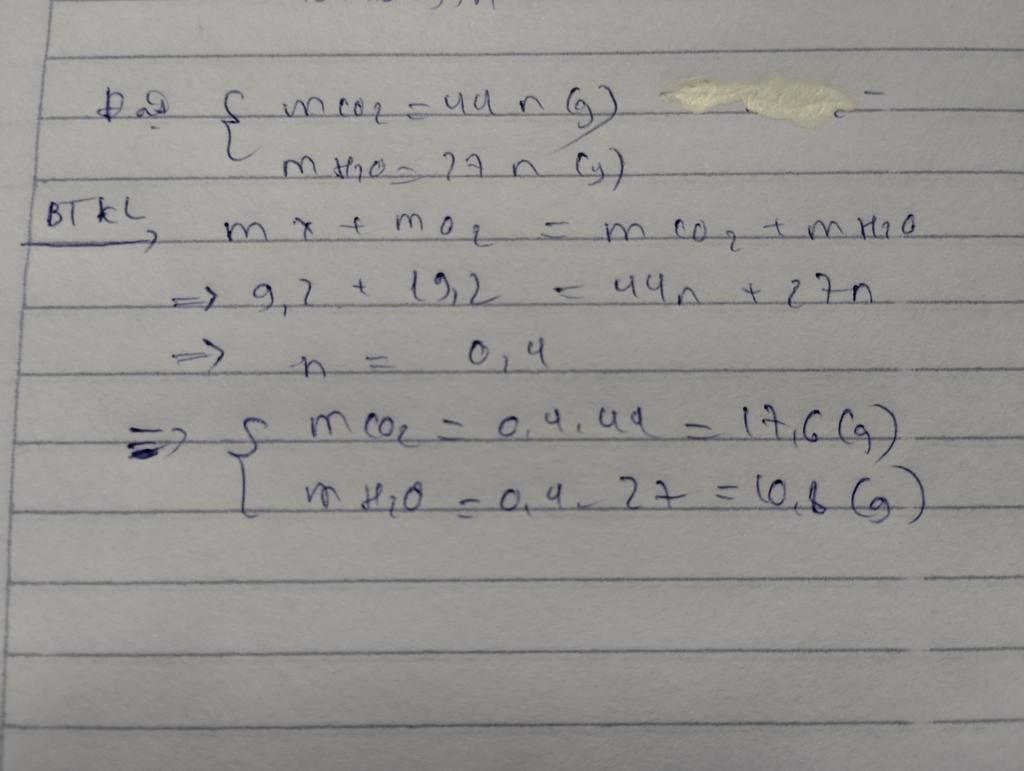 Đặt { mCO2 = 44n (g)
mH2O = 27n (g)
BTKL → mx + mO2 = mCO2 + mH2O
=> 9,2 + 19,2 = 44n + 27n
=> n = 0,4
=> { mCO2 = 0,4.44 = 17,6 (g)
mH2O = 0,4.27 = 10,8 (g)